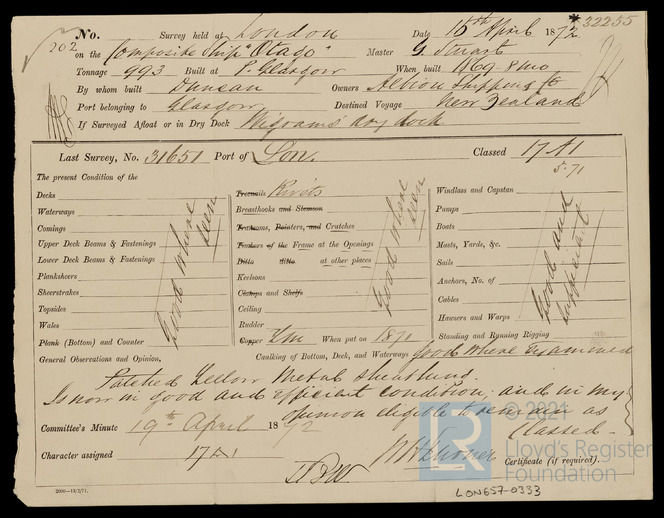 No. Survey held at London Date 16th April 1872 *32255
202 on the Composite Ship "Otago" Master G. Stuart
Tonnage 993 Built at P. Glasgow When built 1869-8mo
By whom built Duncan Owners Albion Shipping Co
Port belonging to Glasgow Destined Voyage New Zealand
If Surveyed Afloat or in Dry Dock Wigrams' dry dock
Last Survey, No. 31651 Port of Lon. Classed 17 A1
5.71
The present Condition of the
Decks
Waterways
Comings
Upper Deck Beams & Fastenings
Lower Deck Beams & Fastenings
Planksheers
Sheerstrakes
Topsides
Wales
Plank (Bottom) and Counter
Good where seen
Treenails Rivets
Breasthooks and Stemson
Transoms, Pointers, and Crutches
Timbers of the Frame at the Openings
Ditto ditto at other places
Keelsons
Clamps and Shelfs
Ceiling
Rudder
Copper Y.M. When put on 1871
Good where seen
Windlass and Capstan
Pumps
Boats
Masts, Yards, &c.
Sails
Anchors, No. of
Cables
Hawsers and Warps
Standing and Running Rigging
Good and sufficient
General Observations and Opinion, Caulking of Bottom, Deck, and Waterways good where examined
Patched Yellow Metal sheathing.
Is now in good and efficient condition, and in my
opinion eligible to remain as
Classed-
Committee's Minute 19th April 1872
Character assigned 17 A1
Certificate (if required).
2000-13/2/71.
LON657-0333
© 2021
LR
Lloyd's Register
Foundation